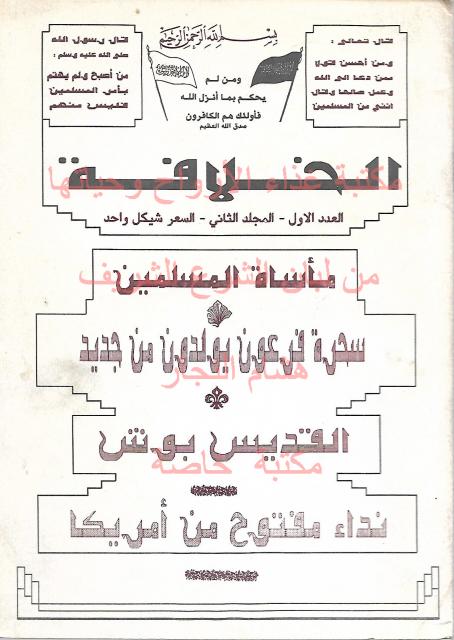 بسم الله الرحمن الرحيم
قال تعالى :
ومن أحسن قولا
ممن دعا إلى الله
وعمل صالحا وقال
إنني من المسلمين
ومن لم
يحكم بما أنزل الله
فأولئك هم الكافرون
صدق الله العظيم
قال رسول الله
صلى الله عليه وسلم :
من أصبح ولم يهتم
بأمر المسلمين
فليس منهم
الخلافة
مكتبة غذاء الأرواح وحياتها
العدد الاول - المجلد الثاني - السعر شيكل واحد
من لبان الشرع الشريف
مأساة المسلمين
سحرة فرعون يولدون من جديد
هشام النجار
القديس بوش
مكتبة خاصة
نداء مفتوح من أمريكا